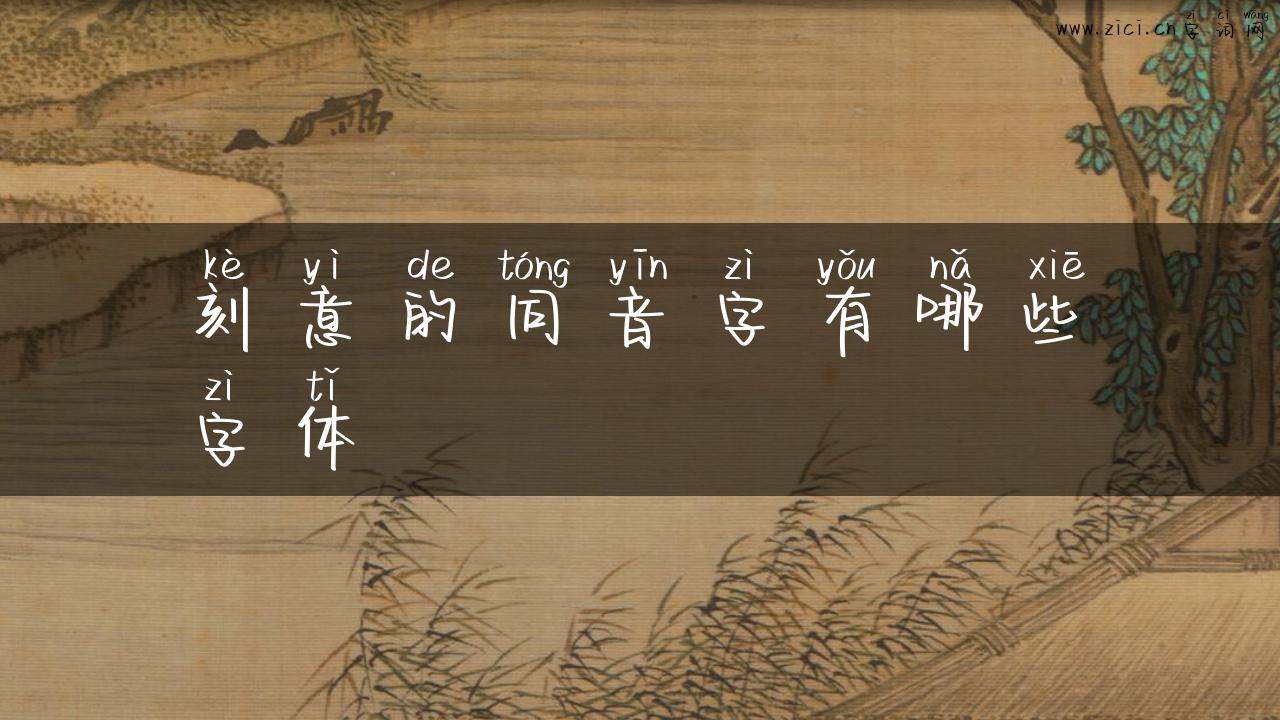 zì cí wǎng
www.zici.cn字词网
kè yì de tóng yīn zì yǒu nǎ xiē
刻意的同音字有哪些
zì tǐ
字体